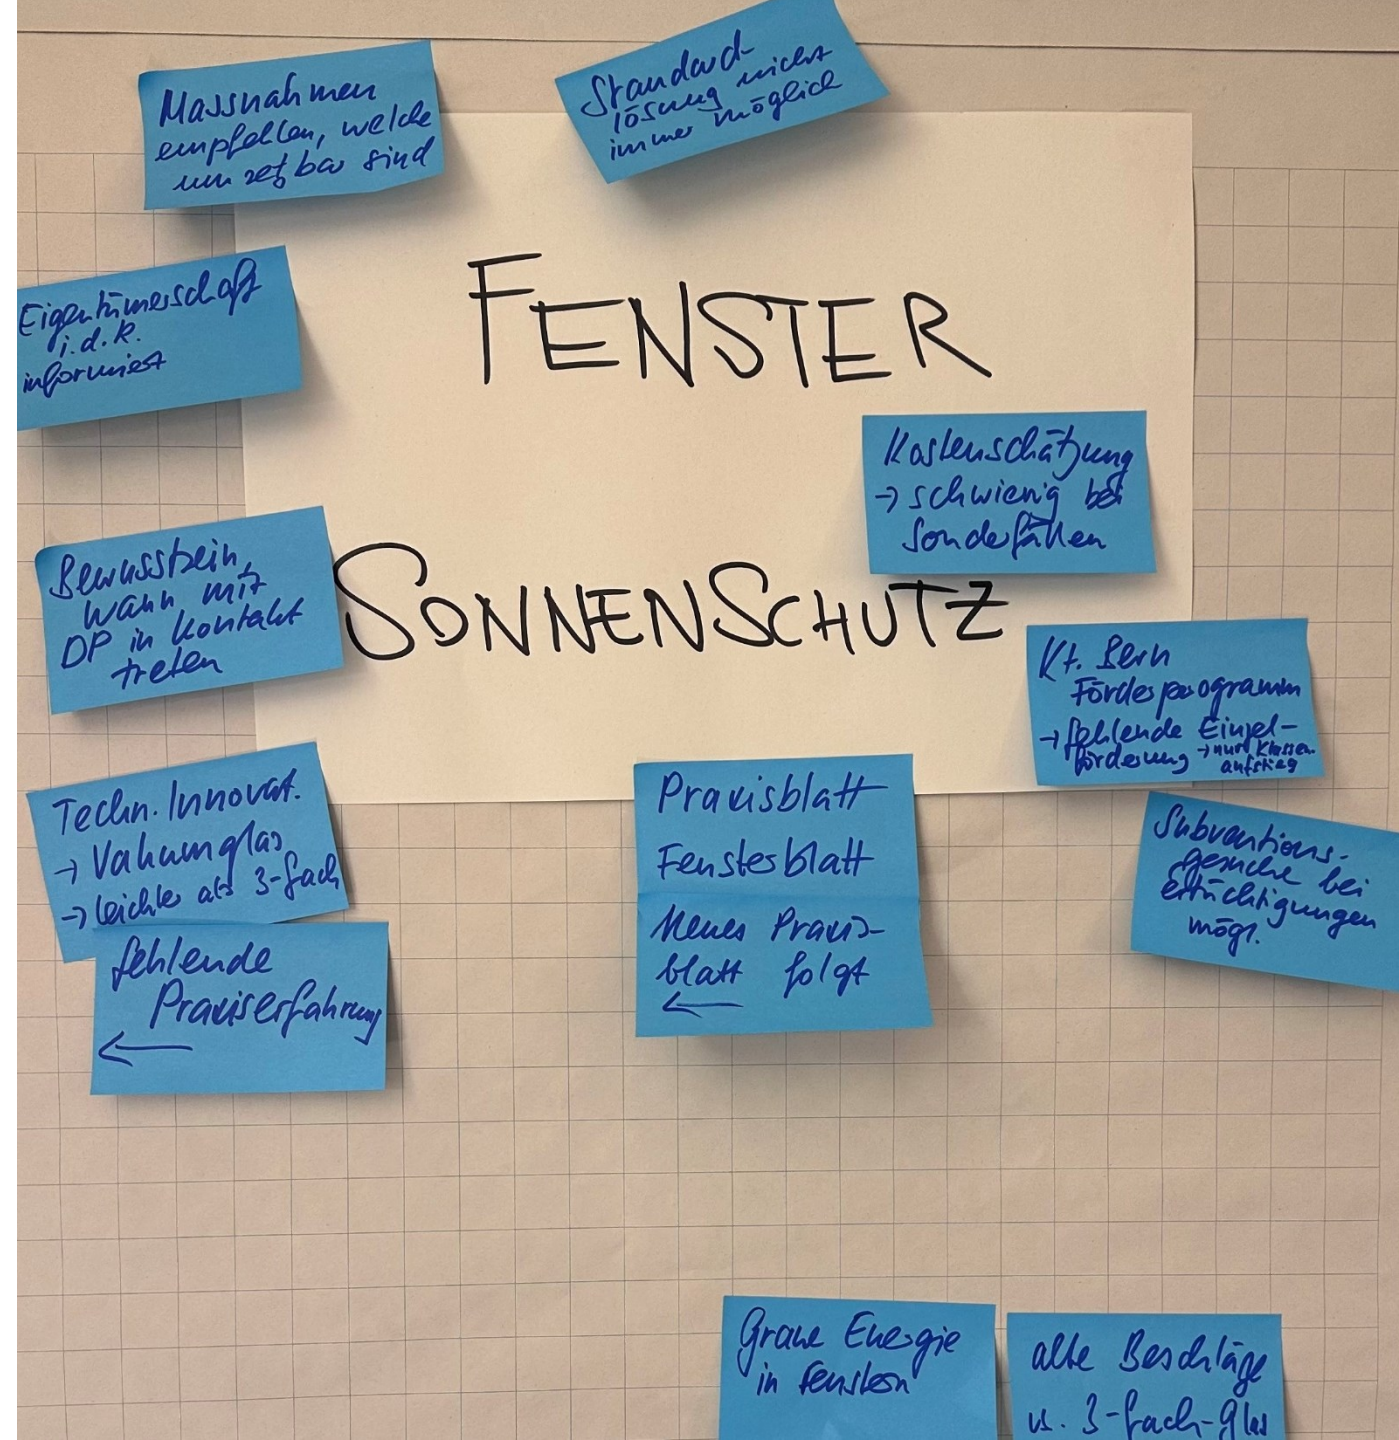 Massnahmen
empfehlen, welche
umsetzbar sind
Standard-
lösung nicht
immer möglich
Eigentümerschaft
i.d.R.
informiert
FENSTER
Kostenschätzung
→ schwierig bei
Sonderfällen
Bewusstsein,
wann mit
DP in Kontakt
treten
SONNENSCHUTZ
Kt. Bern
Förderprogramm
→ fehlende Einzel-
förderung → nur Klassen-
aufstieg
Techn. Innovat.
→ Vakuumglas
→ leichter als 3-fach
fehlende
Praxiserfahrung
←
Praxisblatt
Fensterblatt
Neues Praxis-
blatt folgt
←
Subventions-
gesuche bei
Ertüchtigungen
mögl.
Graue Energie
in Fenstern
alte Beschläge
vs. 3-fach-Glas